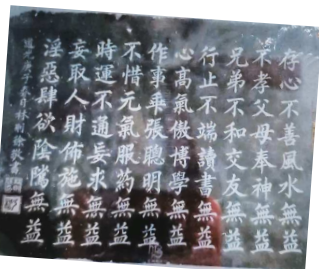 存心不善風水無益
不孝父母奉神無益
兄弟不和交友無益
行止不端讀書無益
心高氣傲博學無益
作事乖張聰明無益
不惜元氣服药無益
時運不通妄求無益
妄取人財佈施無益
淫惡肆欲陰隲無益